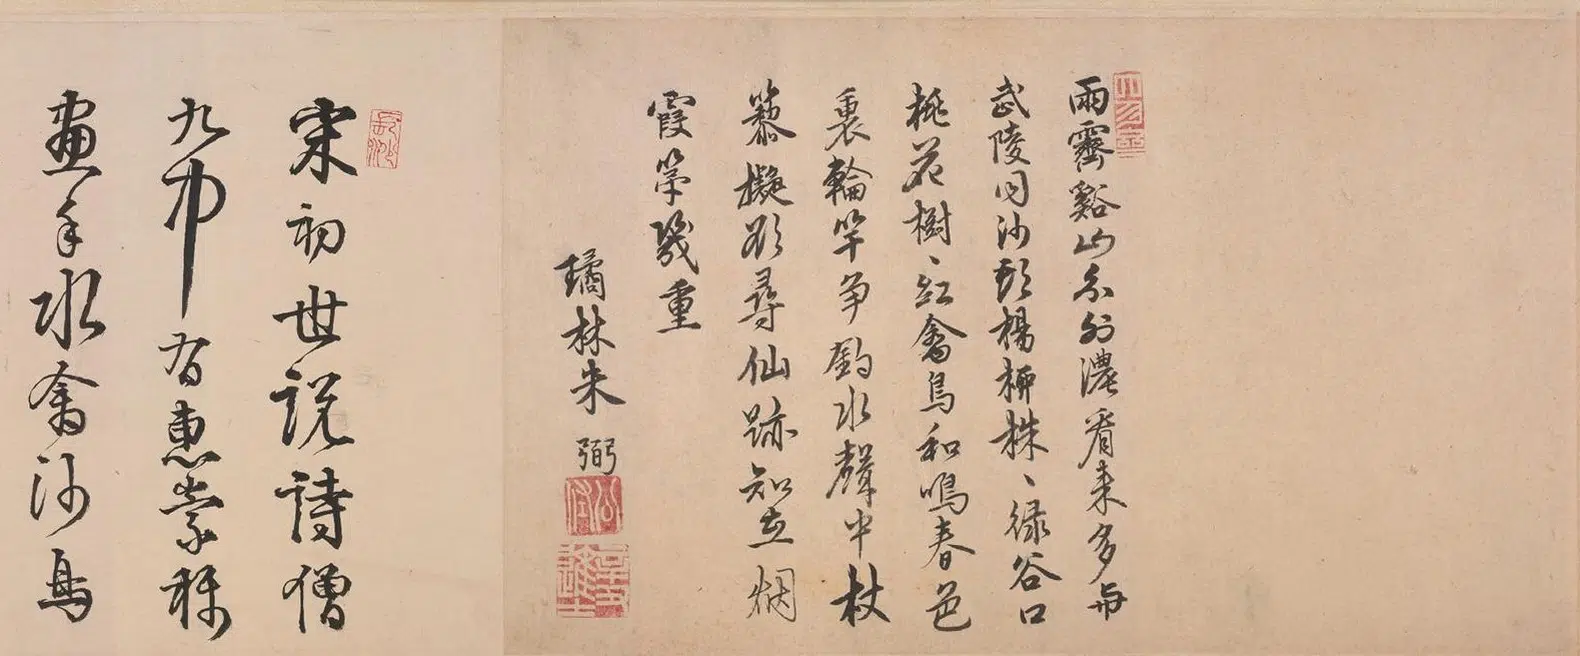 雨霽谿山分外濃看來多與
武陵同沙頭楊柳株、綠谷口
桃花樹、紅禽鳥和鳴春色
裏輪竿爭釣水聲中杖
藜擬欲尋仙跡知在烟
霞第幾重
璚林朱弼
宋初世説詩僧
九中有惠崇稱
畫手水禽沙鳥